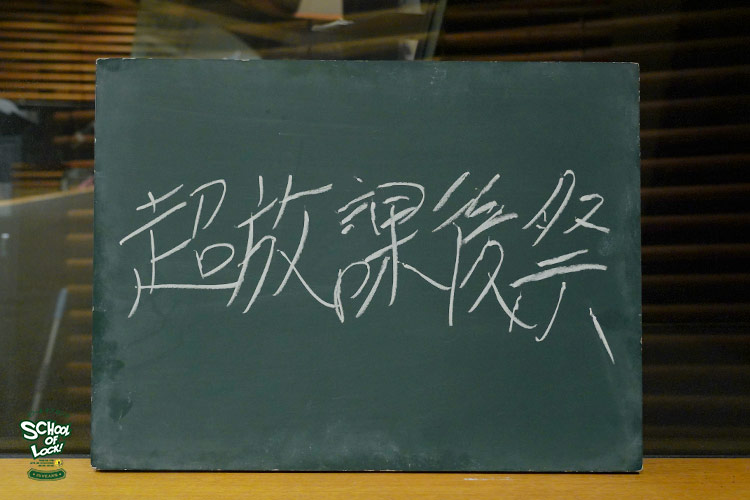 超放課後祭
SCHOOL
OF
LOCK!